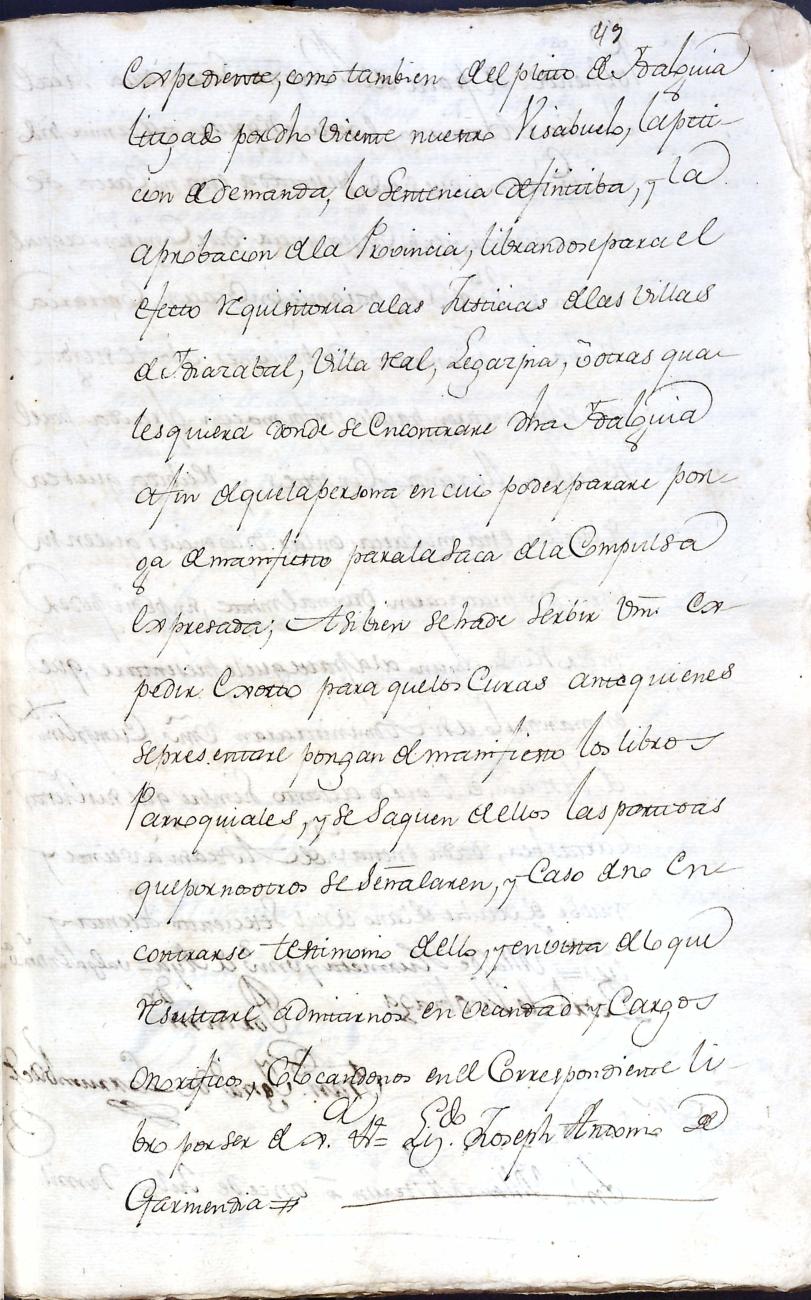 49
Expediente, como tambien del pleito de Idalguia
litigado por dho Vicente nuestro Visabuelo, la peti-
cion de demanda, la Sentencia definitiba, y la
aprobacion de la Provincia, librandose para el
efecto requisitoria a las Justicias de las villas
de Idiazabal, Villa Real, Legazpia, ù otras qua-
lesquiera donde se Encontrare dha Idalguia
afin de que la persona en cuio poder parare pon-
ga de manifiesto para la saca de la Compulsa
Expresada; Asibien se ha de Serbir Vm. Ex-
pedir Exorto para que los Curas ante quienes
se presentare pongan de manifiesto los libros
Parroquiales, y se Saquen de ellos las partidas
que por nosotros se Señalaren, y Caso de no En-
contrarse testimonio de ello, y en vista de lo que
Resultare admitirnos en vecindad y Cargos
Onorificos Colocandonos en el Correspondiente li-
bro por ser de Liz.do Joseph Antonio de
Garmendia =